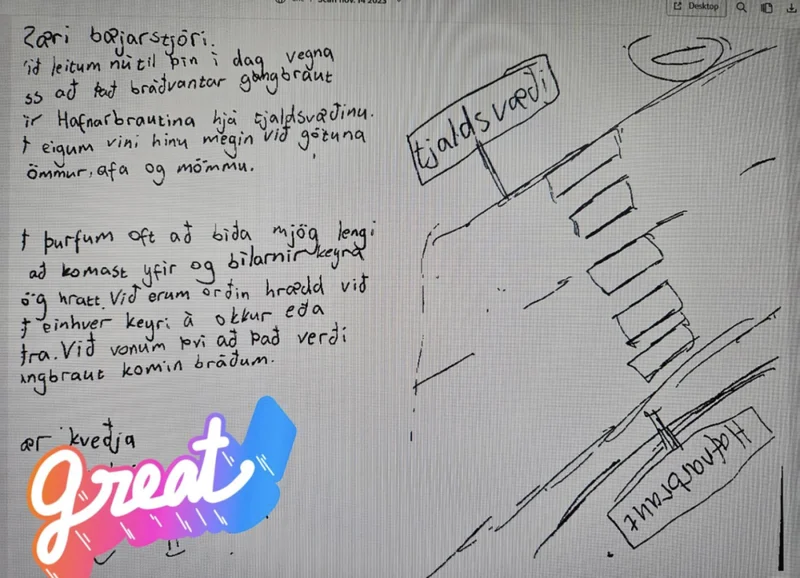 Kæri bæjarstjóri.
ið leitum nú til þín í dag vegna
ss að það bráðvantar gangbraut
ir Hafnarbrautina hjá tjaldsvæðinu.
eigum vini hinu megin við götuna
ömmur, afa og mömmu.
þurfum oft að bíða mjög lengi
að komast yfir og bílarnir keyra
ög hratt. Við erum orðin hrædd við
einhver keyri á okkur eða
tra. Við vonum því að það verði
ngbraut komin bráðum.
ær kveðja
great
Desktop
tjaldsvæði
Hafnarbraut